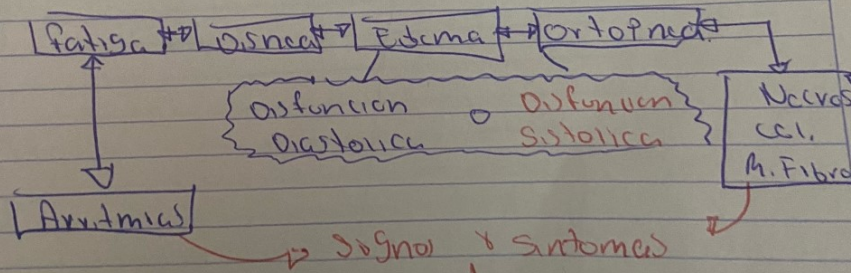 fatiga Disnea Edema Ortopnea
Disfuncion o Disfuncion
Diastolica Sistolica
Necros
Cel.
M. Fibro
Arritmias
Signos y Sintomas